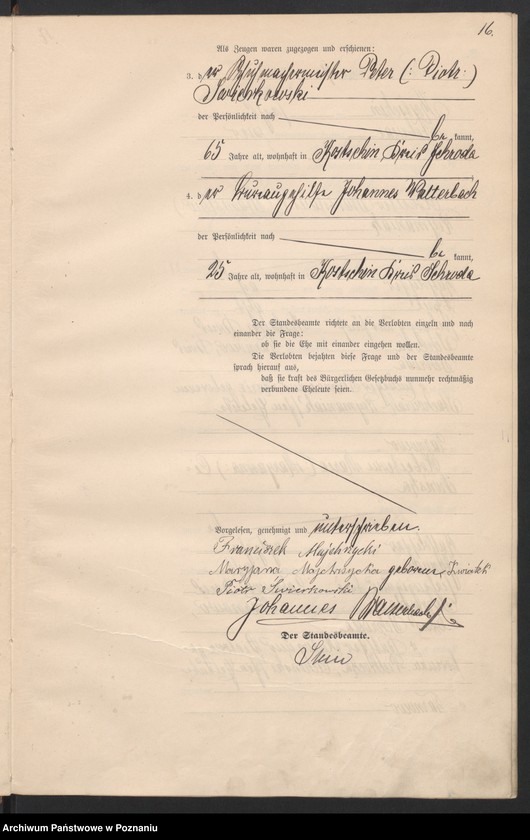 16.
Als Zeugen waren zugezogen und erschienen:
3. der Schuhmachermeister Peter (: Piotr :)
Swierkowski
der Persönlichkeit nach
be kannt,
65 Jahre alt, wohnhaft in Kostschin Kreis Schroda
4. der Bureaugehilfe Johannes Walterbach
der Persönlichkeit nach
be kannt,
25 Jahre alt, wohnhaft in Kostschin Kreis Schroda
Der Standesbeamte richtete an die Verlobten einzeln und nach
einander die Frage:
ob sie die Ehe mit einander eingehen wollen.
Die Verlobten bejahten diese Frage und der Standesbeamte
sprach hierauf aus,
daß sie kraft des Bürgerlichen Gesetzbuchs nunmehr rechtmäßig
verbundene Eheleute seien.
Vorgelesen, genehmigt und unterschrieben.
Franciszek Majchrzycki
Maryjana Majchrzycka geborene Kwiatek
Piotr Swierkowski
Johannes Walterbach
Der Standesbeamte.
Archiwum Państwowe w Poznaniu